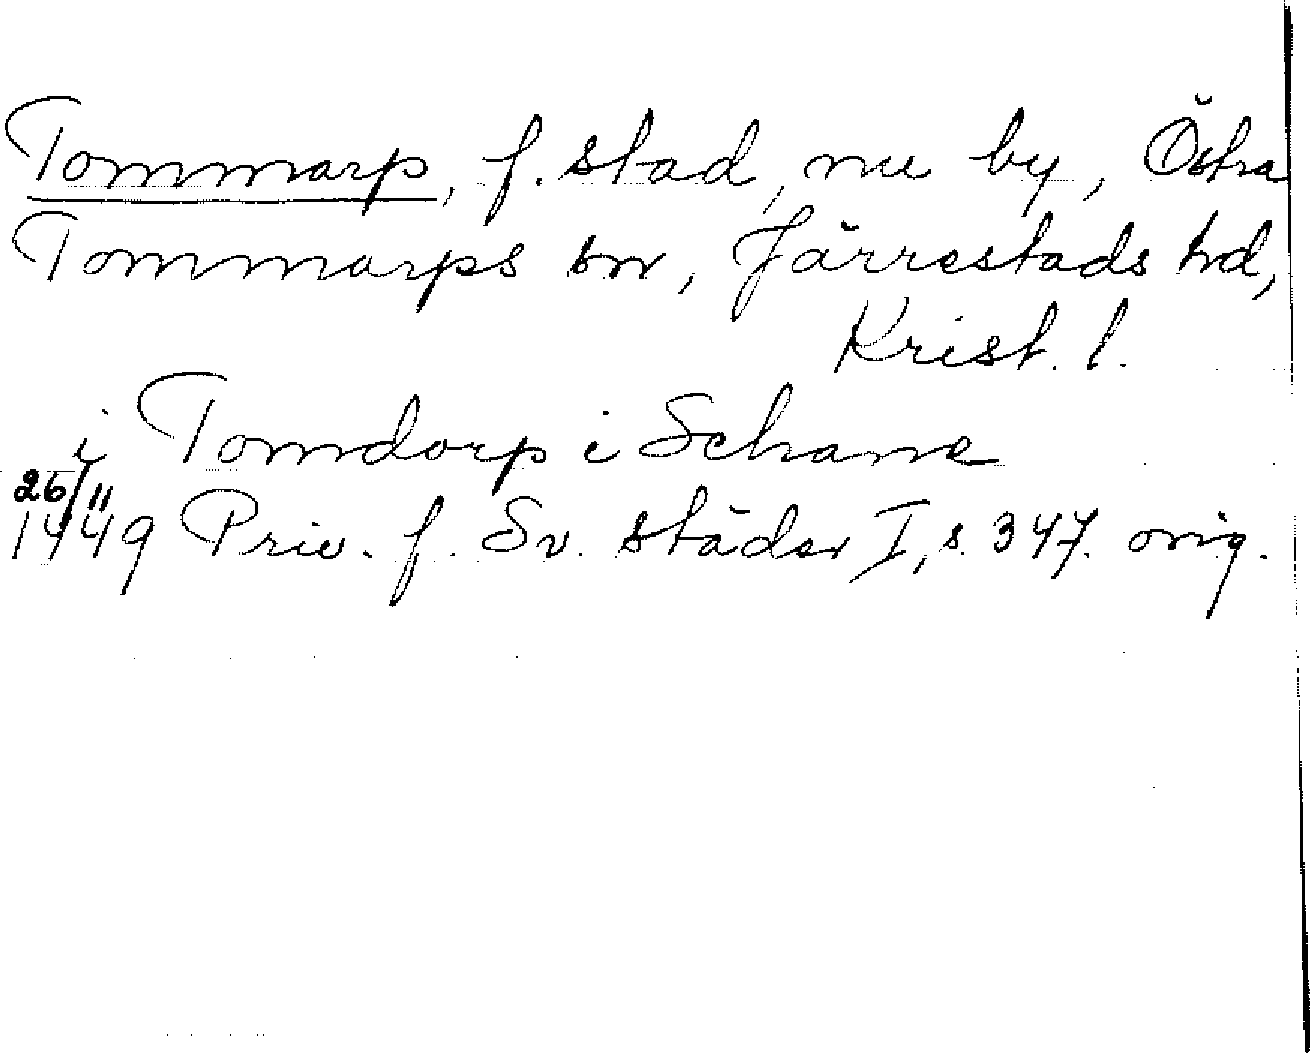 Tommarp, f. stad, nu by, Östra
Tommarps sn, Järrestads hd,
Krist. l.
i Tomdorp i Schane
26/11
1449 Priv. f. Sv. städer I, s. 347. orig.